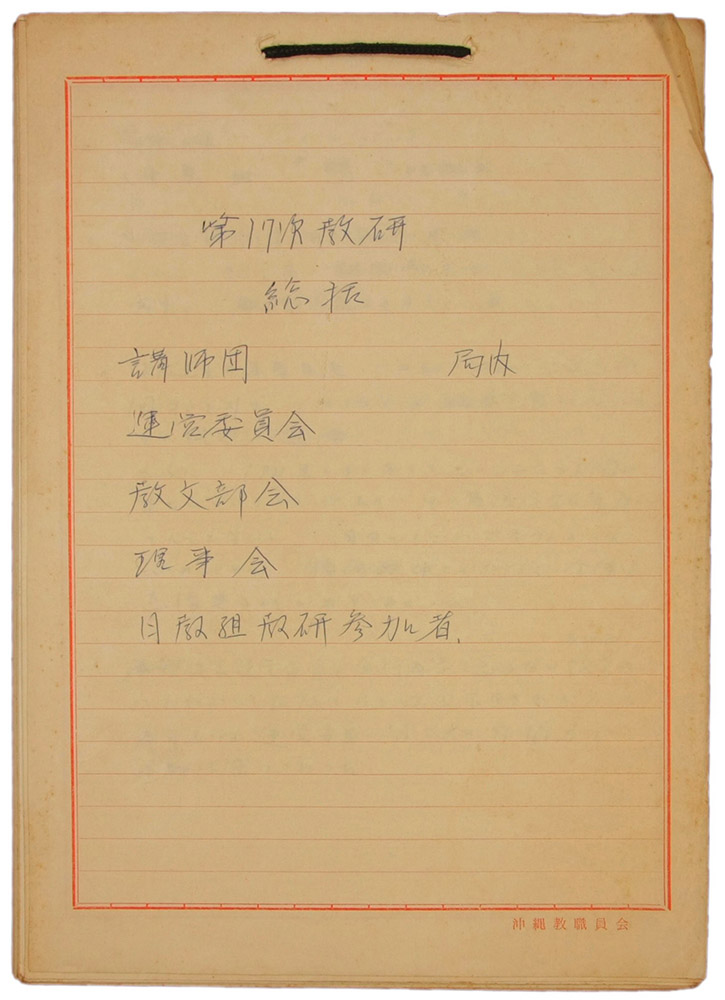 第17次教研
総括
講師団 局内
運営委員会
教文部会
理事会
日教組教研参加者、
沖縄教職員会